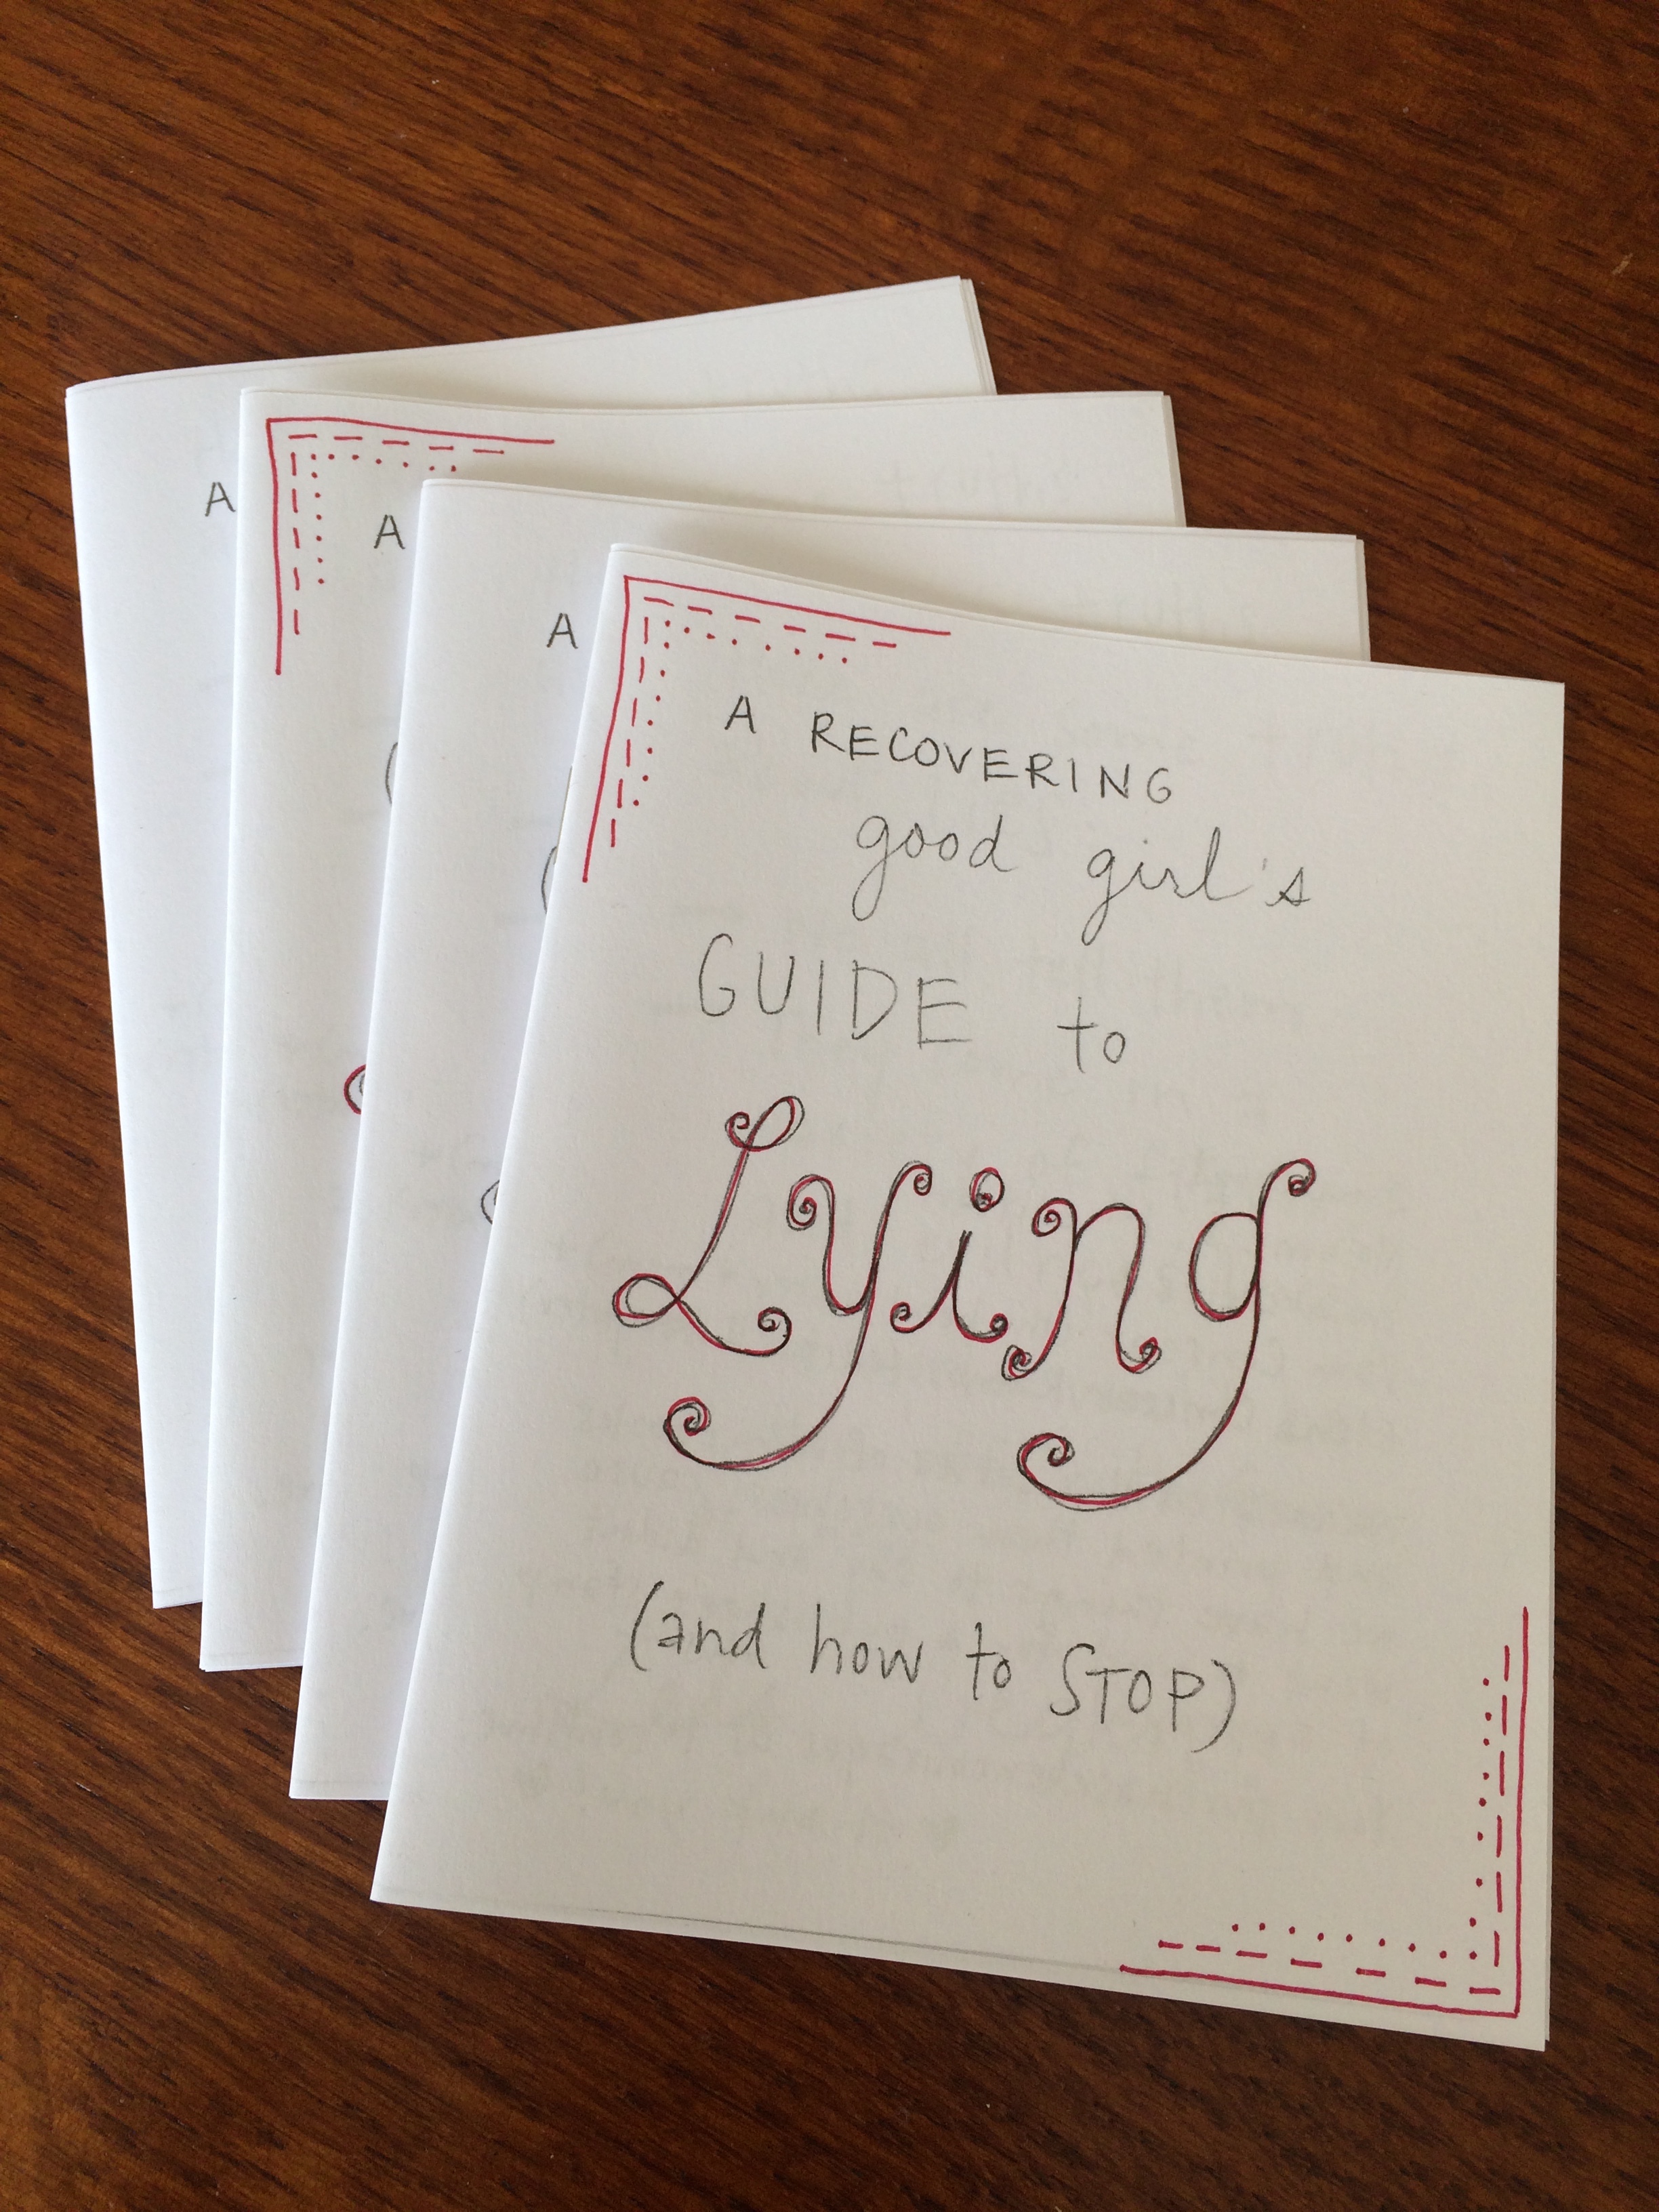 A
A
A
A RECOVERING
good girl's
GUIDE to
Lying
(and how to STOP)